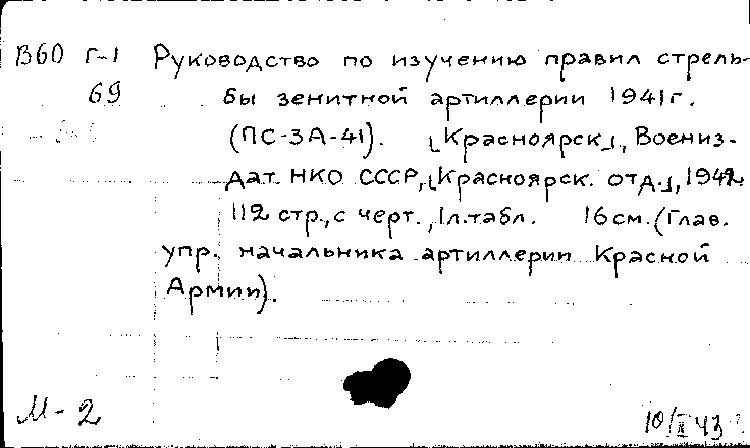 В60 Г-1 Руководство по изучению правил стрель-
69 бы зенитной артиллерии 1941г.
(ПС-ЗА-41). [Красноярск], Воениз-
дат НКО СССР, [Красноярск. отд.], 1942
112 стр., с черт., 1л.табл. 16см. (Глав.
упр. начальника артиллерии Красной
Армии).
М-2 10/II 43